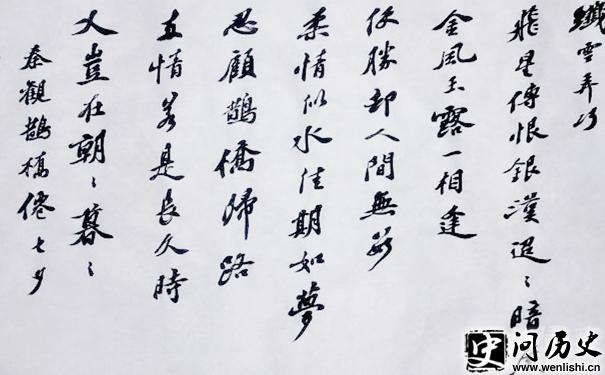 纖雲弄巧
飛星傳恨銀漢迢〻暗
金風玉露一相逢
便勝却人間無數
柔情似水佳期如夢
忍顧鵲橋歸路
情若是長久時
又豈在朝〻暮〻
秦觀鵲橋僊七夕
史问历史
www.wenlishi.cn